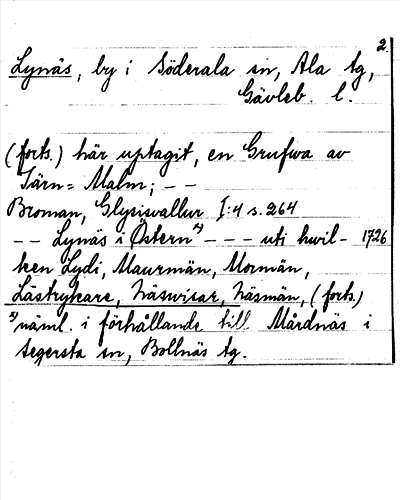 2.
Lynäs, by i Söderala sn, Ala tg,
Gävleb. l.
(forts.) här uptagit, en Grufwa av
Järn= Malm; - -
Broman, Glysisvallur I:4 s. 264
- - Lynäs i Östern x) - - - uti hwil- 1726
ken Lydi, Maurmän, Mormän,
Lästrykare, Näswisar, Näsmän, (forts.)
x) näml. i förhållande till Mårdnäs i
Segersta sn, Bollnäs tg.